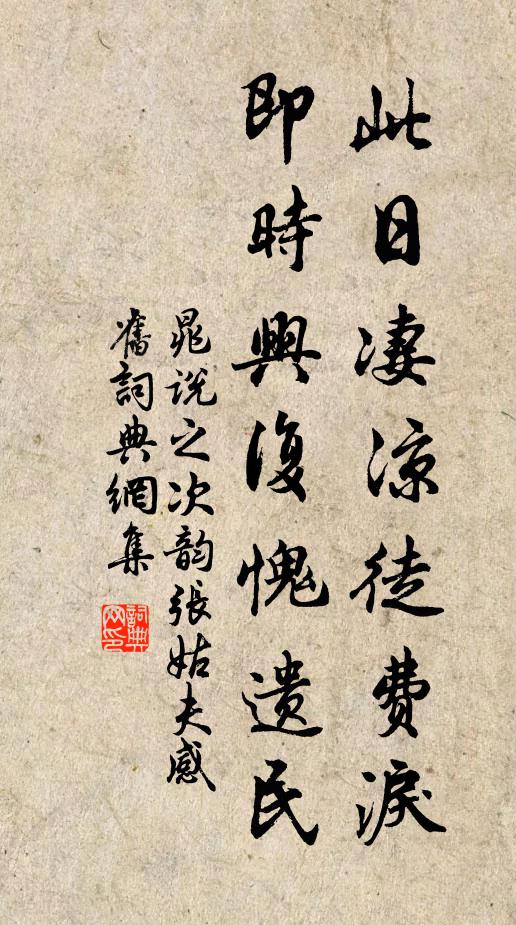 此日凄凉徒費淚
即時興復愧遺民
晁説之次韵張姑夫感
舊詞典網集
詞典网印